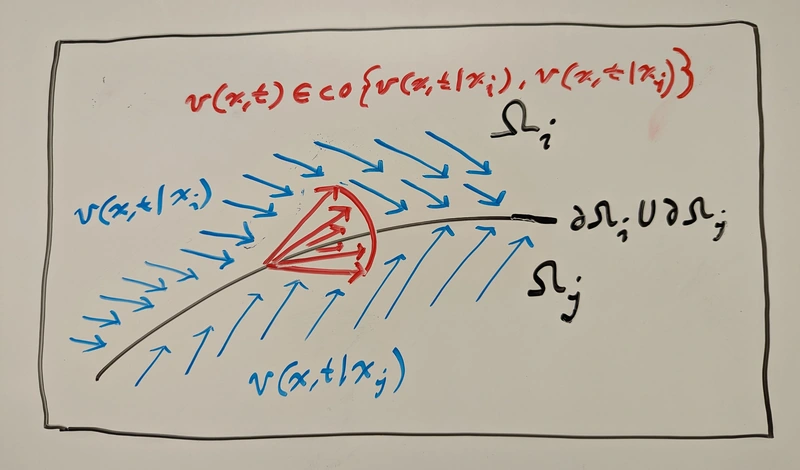 v(x,t) ∈ co{v(x,t|x_i), v(x,t|x_j)}
Ω_i
v(x,t|x_i)
∂Ω_i ∪ ∂Ω_j
Ω_j
v(x,t|x_j)